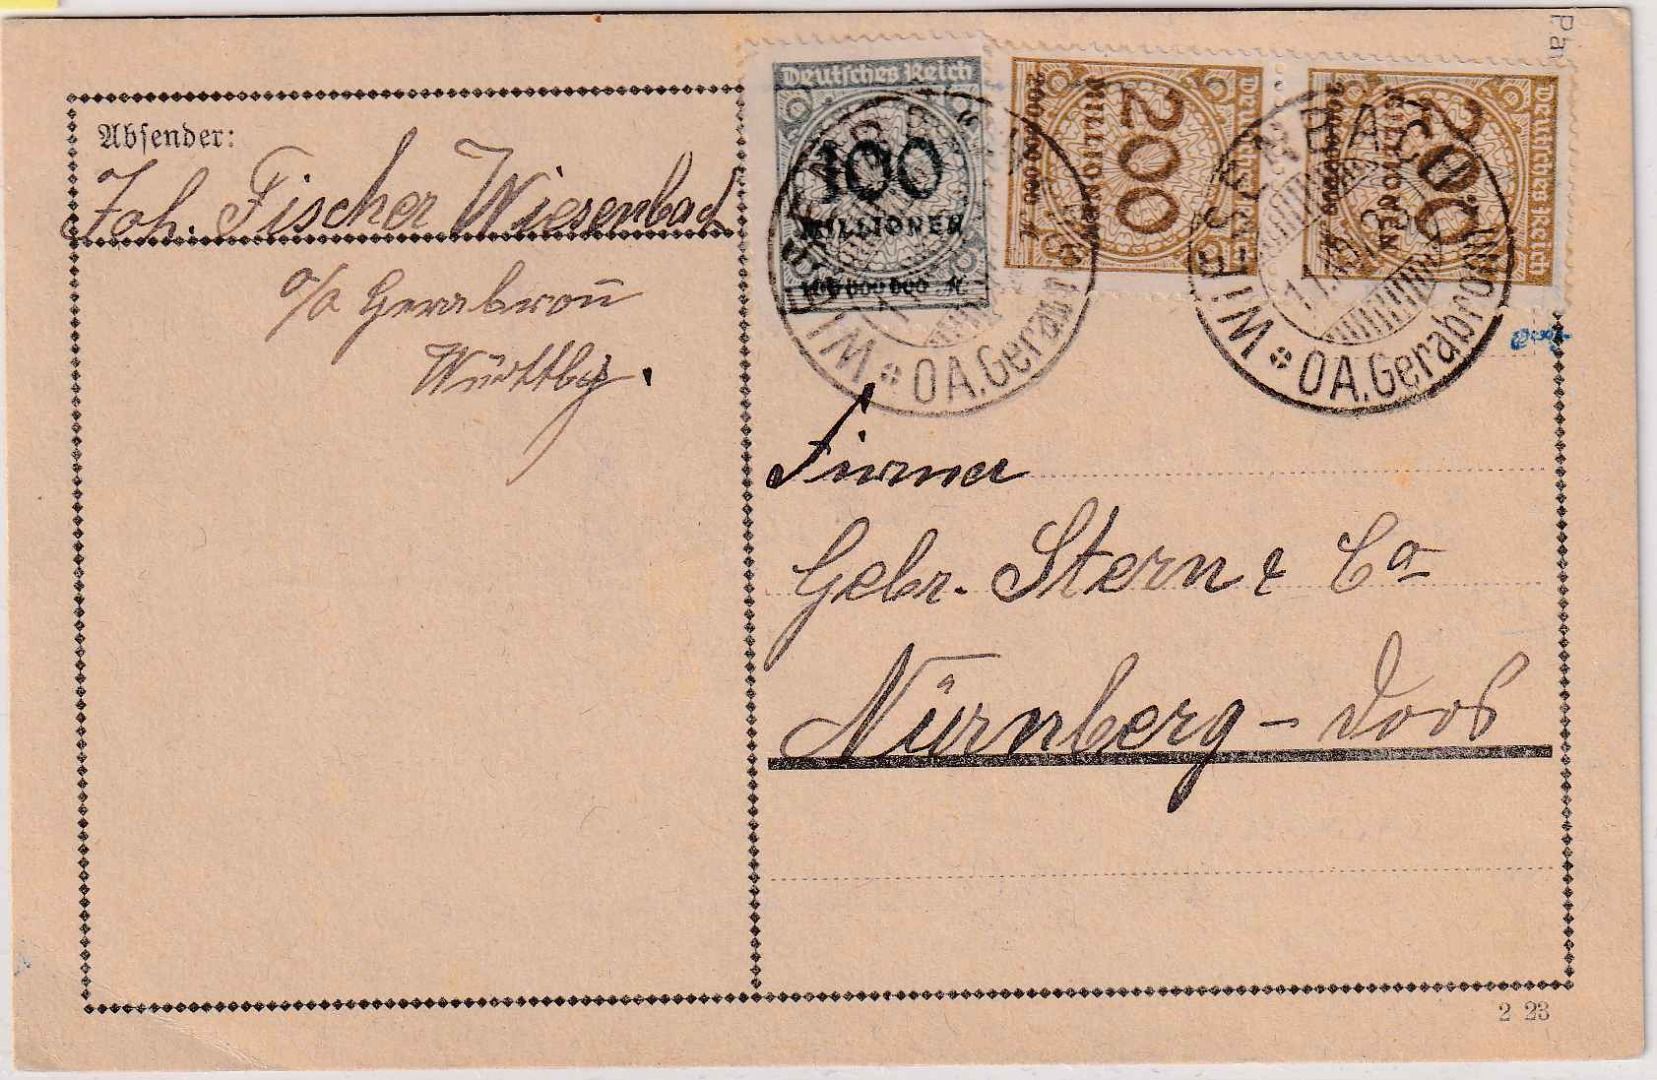 Absender:
Joh. Fischer Wiesenbach
o/a Gerabronn
Württbg.
Deutsches Reich
100
MILLIONEN
100 000 000 M.
Deutsches Reich
200
MILLIONEN
200 000 000 M
Deutsches Reich
200
MILLIONEN
WIESENBACH
OA. Gerabronn
WIESENBACH
OA. Gerabronn
Firma
Gebr. Stern & Co
Nürnberg - Doos
2 23